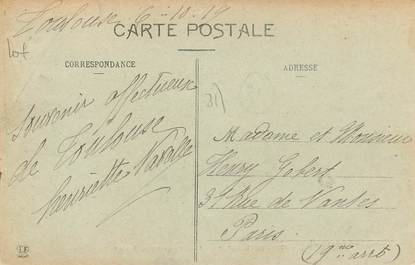 Toulouse 6-10-14
CARTE POSTALE
Lot
CORRESPONDANCE
ADRESSE
31)
Souvenir affectueux
de Toulouse
Henriette
Madame et Monsieur
Henry Gobert
3 Rue de Nantes
Paris.
(19me arrt)